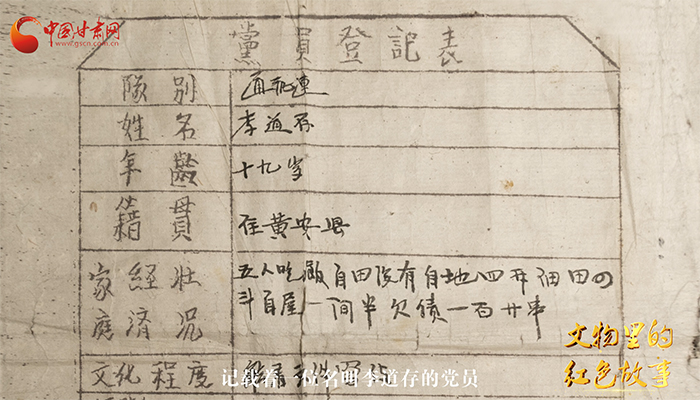 中国甘肃网
www.gscn.com.cn
黨員登記表
隊別
姓名 李道存
年齡 十九岁
籍貫 住黄安县
家庭經济壮况 五人吃飯自田没有自地四升佃田四
斗自屋一间半欠债一百廿串
文化程度
记载着一位名叫李道存的党员
文物里的
红色故事